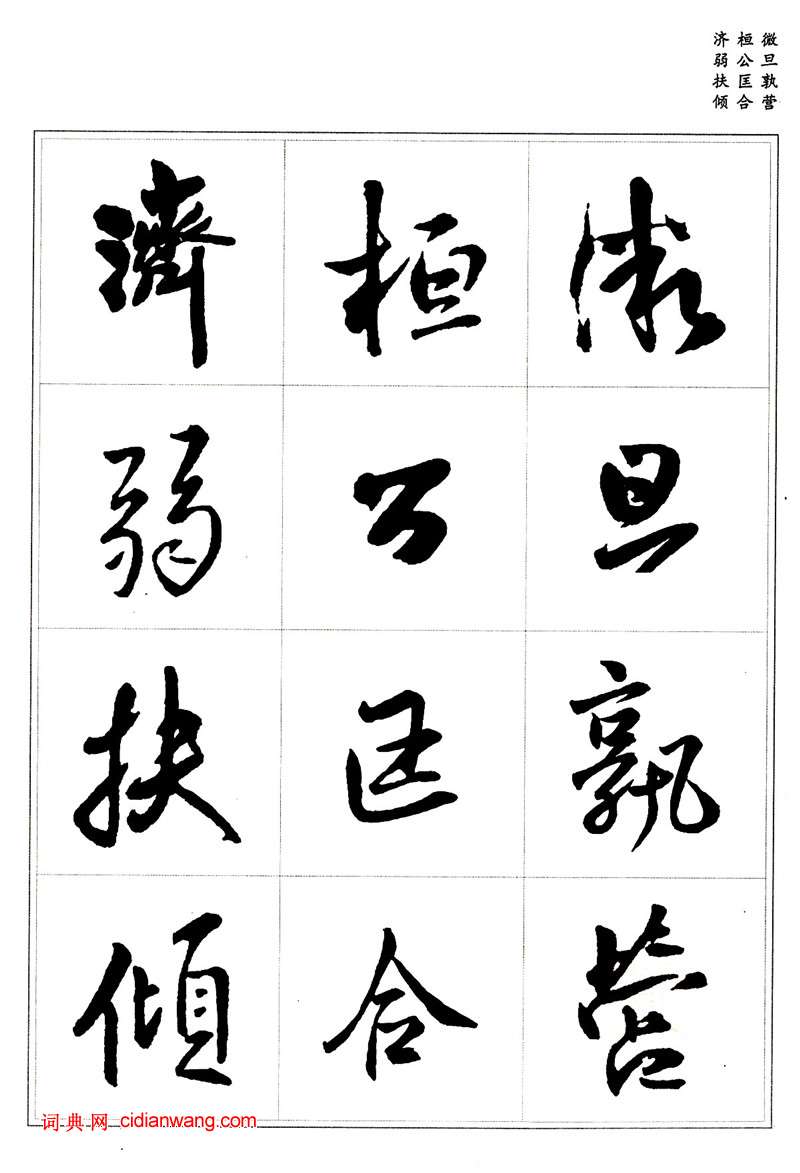 微旦孰营
桓公匡合
济弱扶倾
微旦孰營
桓公匡合
濟弱扶傾
词典网 cidianwang.com